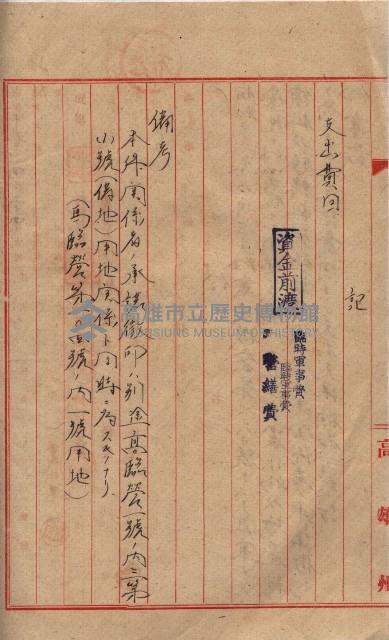 記
支出費目
資金前渡
臨時軍事費
臨時軍事費
營繕費
備考
本件関係者ノ承諾徴印ハ別途高臨營一號ノ内二第
小號(借地)用地関係ト同時ニ為スモノナリ
號ノ内一號用地)
高雄州
高雄市立歷史博物館
KAOHSIUNG MUSEUM OF HISTORY